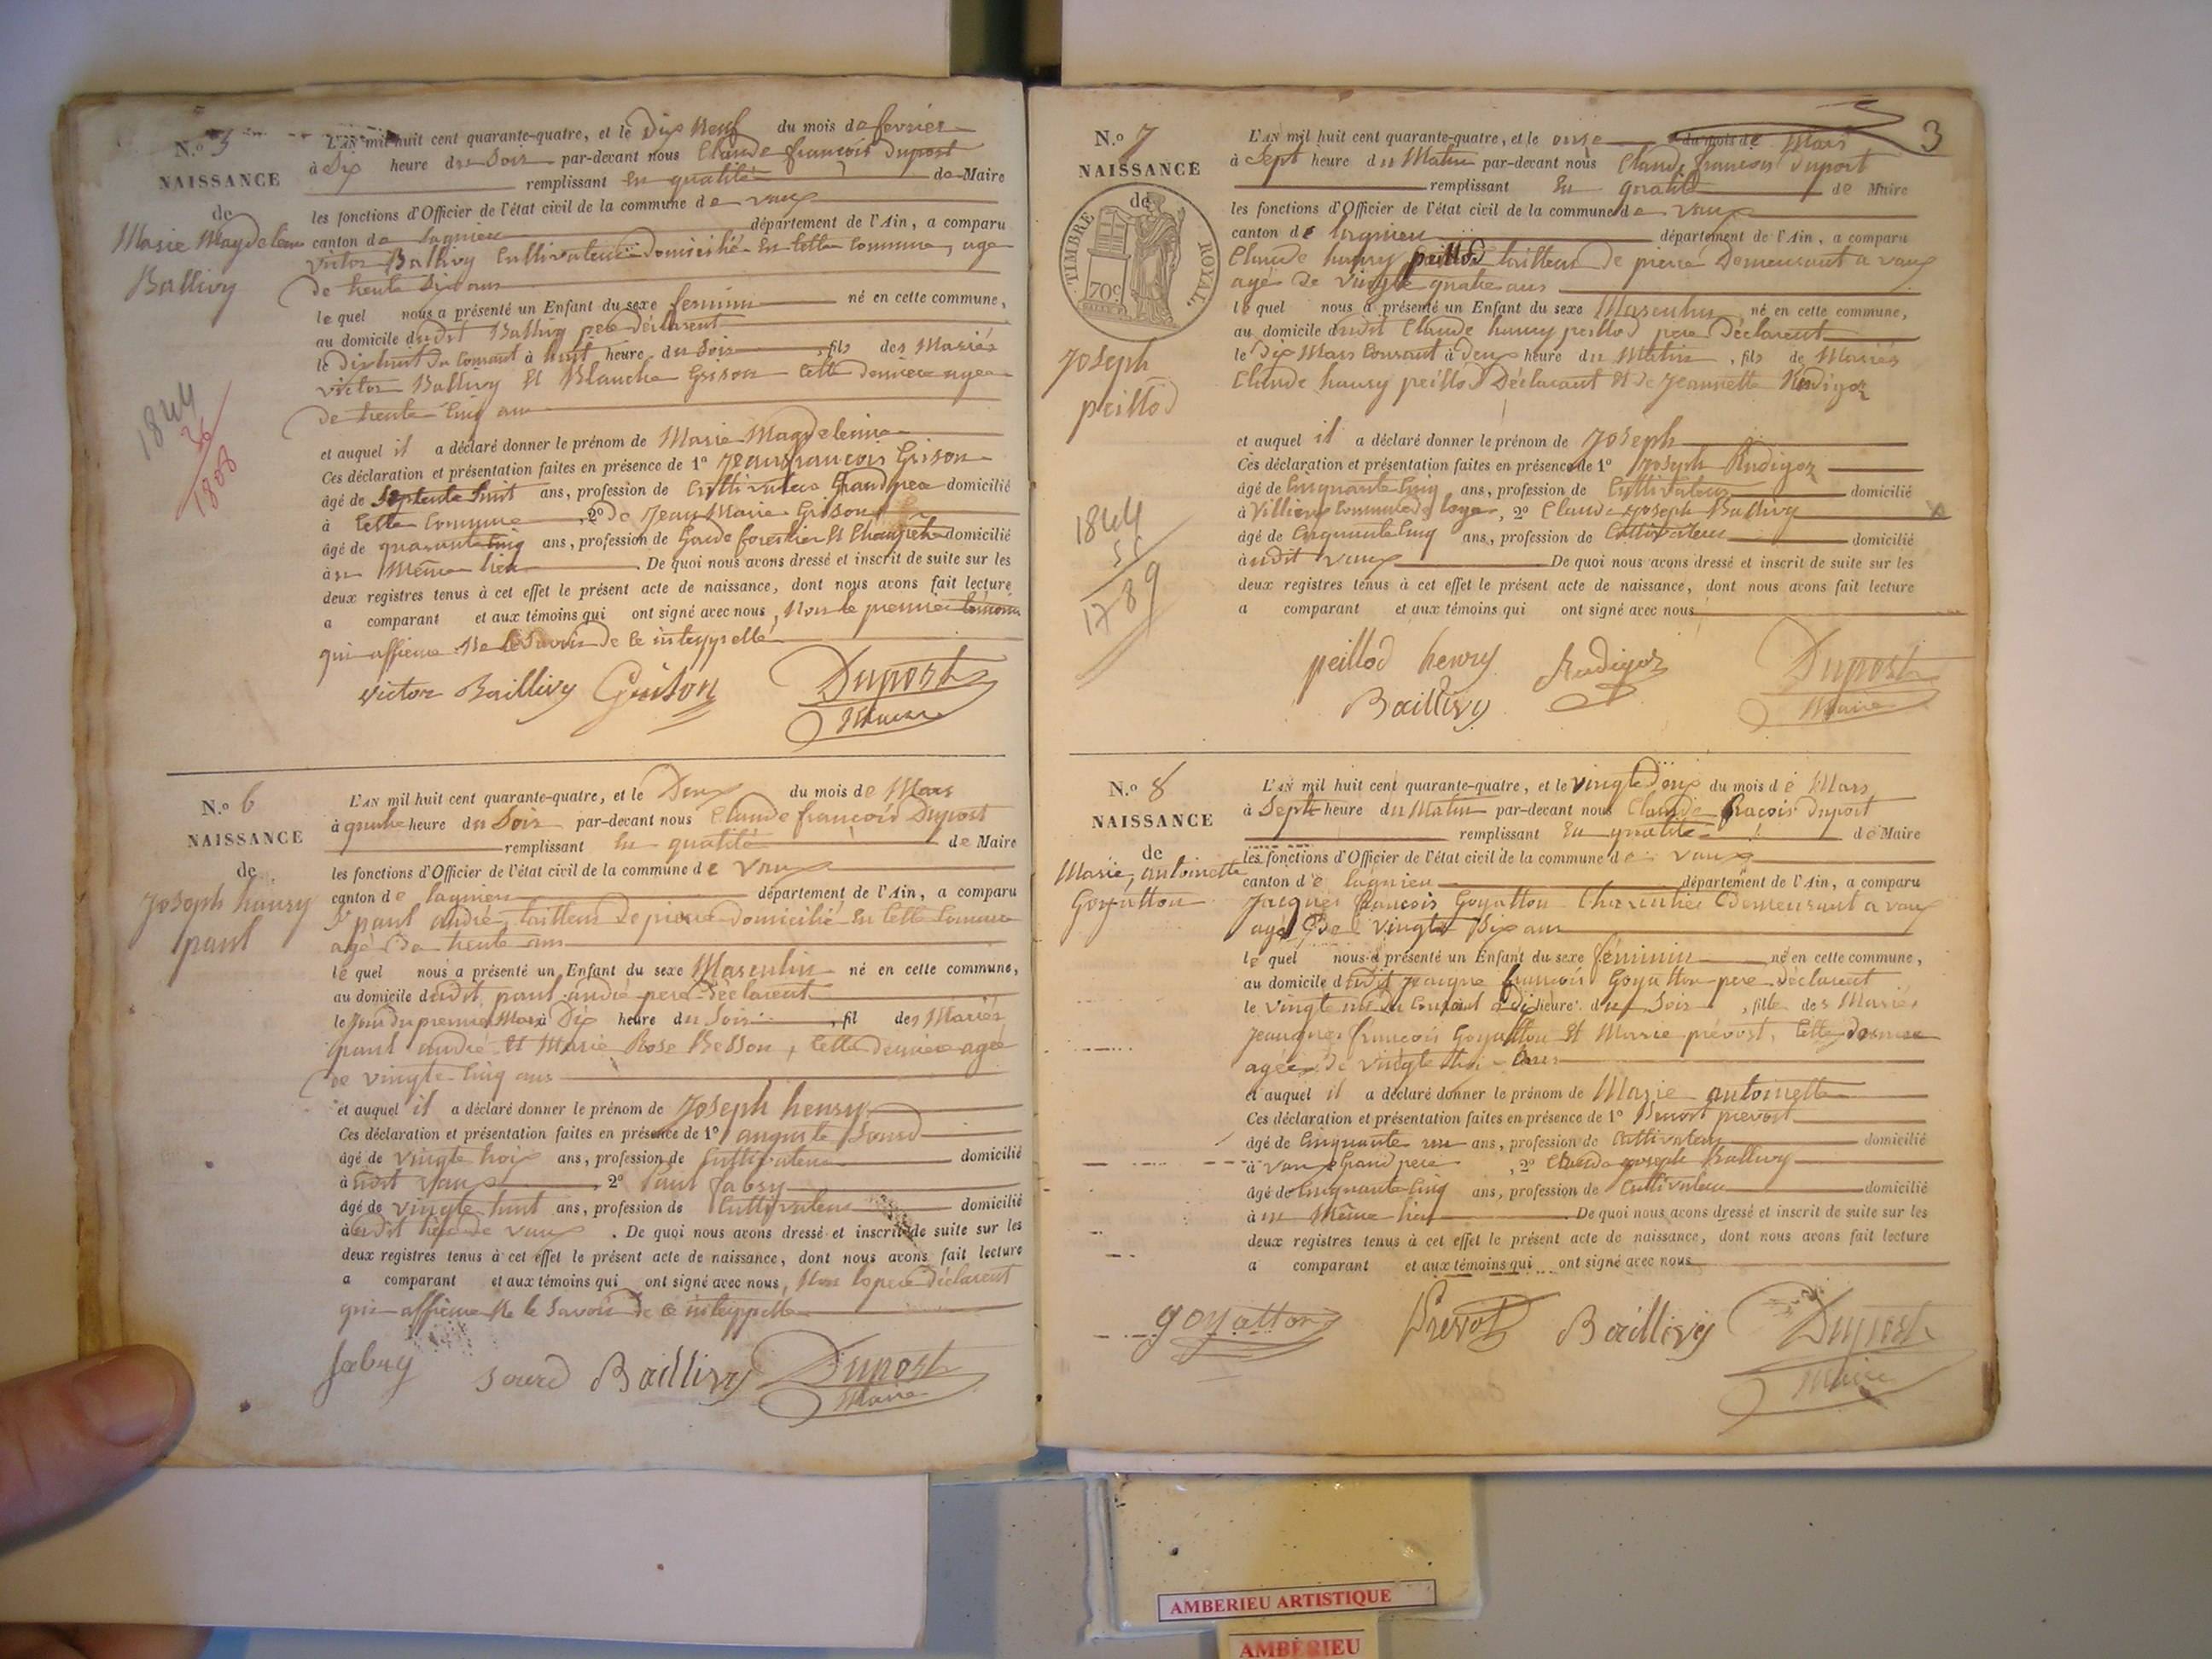 N.o 5
NAISSANCE
de
Marie Magdeleine
Ballivy
1844
36
1808
L'AN mil huit cent quarante-quatre, et le Dix Neuf du mois de fevrier
à Six heure du Soir par-devant nous Claude françois Dupost
remplissant En qualité de Maire
les fonctions d'Officier de l'état civil de la commune de vaux
canton de Lagnieu département de l'Ain, a comparu
victor Ballivy Cultivateur domicilié En Cette Commune, age
de trente Six ans
le quel nous a présenté un Enfant du sexe feminin né en cette commune,
au domicile dudit Ballivy pere déclarent
le Dixhuit du Courant à huit heure du Soir, fils des Mariés
victor Ballivy Et Blanche Grison Cette derniere agee
de trente Cinq ans
et auquel il a déclaré donner le prénom de Marie Magdeleinne
Ces déclaration et présentation faites en présence de 1° Jean francois Grison
âgé de Septente huit ans, profession de Cultivateur Grand pere domicilié
à Cette Commune, 2° de Jean Marie Grison
âgé de quarante Cinq ans, profession de Garde forestier Et Champetre domicilié
à u Même lieu. De quoi nous avons dressé et inscrit de suite sur les
deux registres tenus à cet effet le présent acte de naissance, dont nous avons fait lecture
a comparant et aux témoins qui ont signé avec nous, Non le premier temoin
qui affirme Ne le Savoir de ce interpellé
victor Baillivy Grison Dupost
Maire
N.o 6
NAISSANCE
de
Joseph henry
paul
L'AN mil huit cent quarante-quatre, et le Deux du mois de Mars
à quatre heure du Soir par-devant nous Claude françois Dupost
remplissant En qualité de Maire
les fonctions d'Officier de l'état civil de la commune de Vaux
canton de lagnieu département de l'Ain, a comparu
paul andré, tailleur De pierre domicilié En Cette Commune
agé De trente ans
le quel nous a présenté un Enfant du sexe Masculin né en cette commune,
au domicile dudit paul andré pere déclarent
le Jour du premier Mars à Dix heure du Soir, fil des Mariés
paul andré Et Marie Rose Besson, Cette derniere agée
de vingte Cinq ans
et auquel il a déclaré donner le prénom de Joseph henry
Ces déclaration et présentation faites en présence de 1° auguste Sourd
âgé de vingte trois ans, profession de Cultivateur domicilié
à udit vaux, 2° Paul fabry
âgé de vingte huit ans, profession de Cultivateur domicilié
à udit lieu de vaux. De quoi nous avons dressé et inscrit de suite sur les
deux registres tenus à cet effet le présent acte de naissance, dont nous avons fait lecture
a comparant et aux témoins qui ont signé avec nous, Non le pere déclarent
qui affirme Ne le Savoir De ce interppelle
fabry Sourd Baillivy Dupost
Maire
3
N.o 7
NAISSANCE
de
TIMBRE ROYAL.
70c
Joseph
peillod
1844
55
1789
L'AN mil huit cent quarante-quatre, et le onze du mois de Mars
à Sept heure du Matin par-devant nous Claude francois Dupost
remplissant En qualité de Maire
les fonctions d'Officier de l'état civil de la commune de vaux
canton de lagnieu département de l'Ain, a comparu
Claude henry peillod tailleur de pierre Demeurant a vaux
agé de vingte quatre ans
le quel nous a présenté un Enfant du sexe Masculin né en cette commune,
au domicile dudit Claude henry peillod pere Déclarent
le Dix Mars Courant à Deux heure du Matin, fils de Mariés
Claude henry peillod Déclarant Et de Jeannette Rudigoz
et auquel il a déclaré donner le prénom de Joseph
Ces déclaration et présentation faites en présence de 1° Joseph Rudigoz
âgé de Cinquante Cinq ans, profession de Cultivateur domicilié
à Villieu Commune de loyes, 2° Claude Joseph Ballivy
âgé de Cinquante Cinq ans, profession de Cultivateur domicilié
à udit vaux De quoi nous avons dressé et inscrit de suite sur les
deux registres tenus à cet effet le présent acte de naissance, dont nous avons fait lecture
a comparant et aux témoins qui ont signé avec nous
peillod henry Rudigoz Dupost
Baillivy Maire
N.o 8
NAISSANCE
de
Marie, antoinette
Goyatton
L'AN mil huit cent quarante-quatre, et le vingte Deux du mois de Mars
à Sept heure du Matin par-devant nous Claude fracois Dupost
remplissant En qualité de Maire
les fonctions d'Officier de l'état civil de la commune de vaux
canton de lagnieu département de l'Ain, a comparu
Jacques francois Goyatton Charpentier Demeurant a vaux
agé De vingte Six ans
le quel nous a présenté un Enfant du sexe féminin né en cette commune,
au domicile dudit Jacque francois Goyatton pere déclarent
le vingte un du Courant à Dix heure du Soir, fille des Mariés
Jeacques francois Goyatton Et Marie prévost, Cette derniere
agée de vingte trois ans
et auquel il a déclaré donner le prénom de Marie antoinette
Ces déclaration et présentation faites en présence de 1° Benoit prevost
âgé de Cinquante un ans, profession de Cultivateur domicilié
à vaux Grand pere, 2° Claude Joseph Ballivy
âgé de Cinquante Cinq ans, profession de Cultivateur domicilié
à u Même lieu. De quoi nous avons dressé et inscrit de suite sur les
deux registres tenus à cet effet le présent acte de naissance, dont nous avons fait lecture
a comparant et aux témoins qui ont signé avec nous
goyatton Prevot Baillivy Dupost
Maire
AMBERIEU ARTISTIQUE
AMBÉRIEU